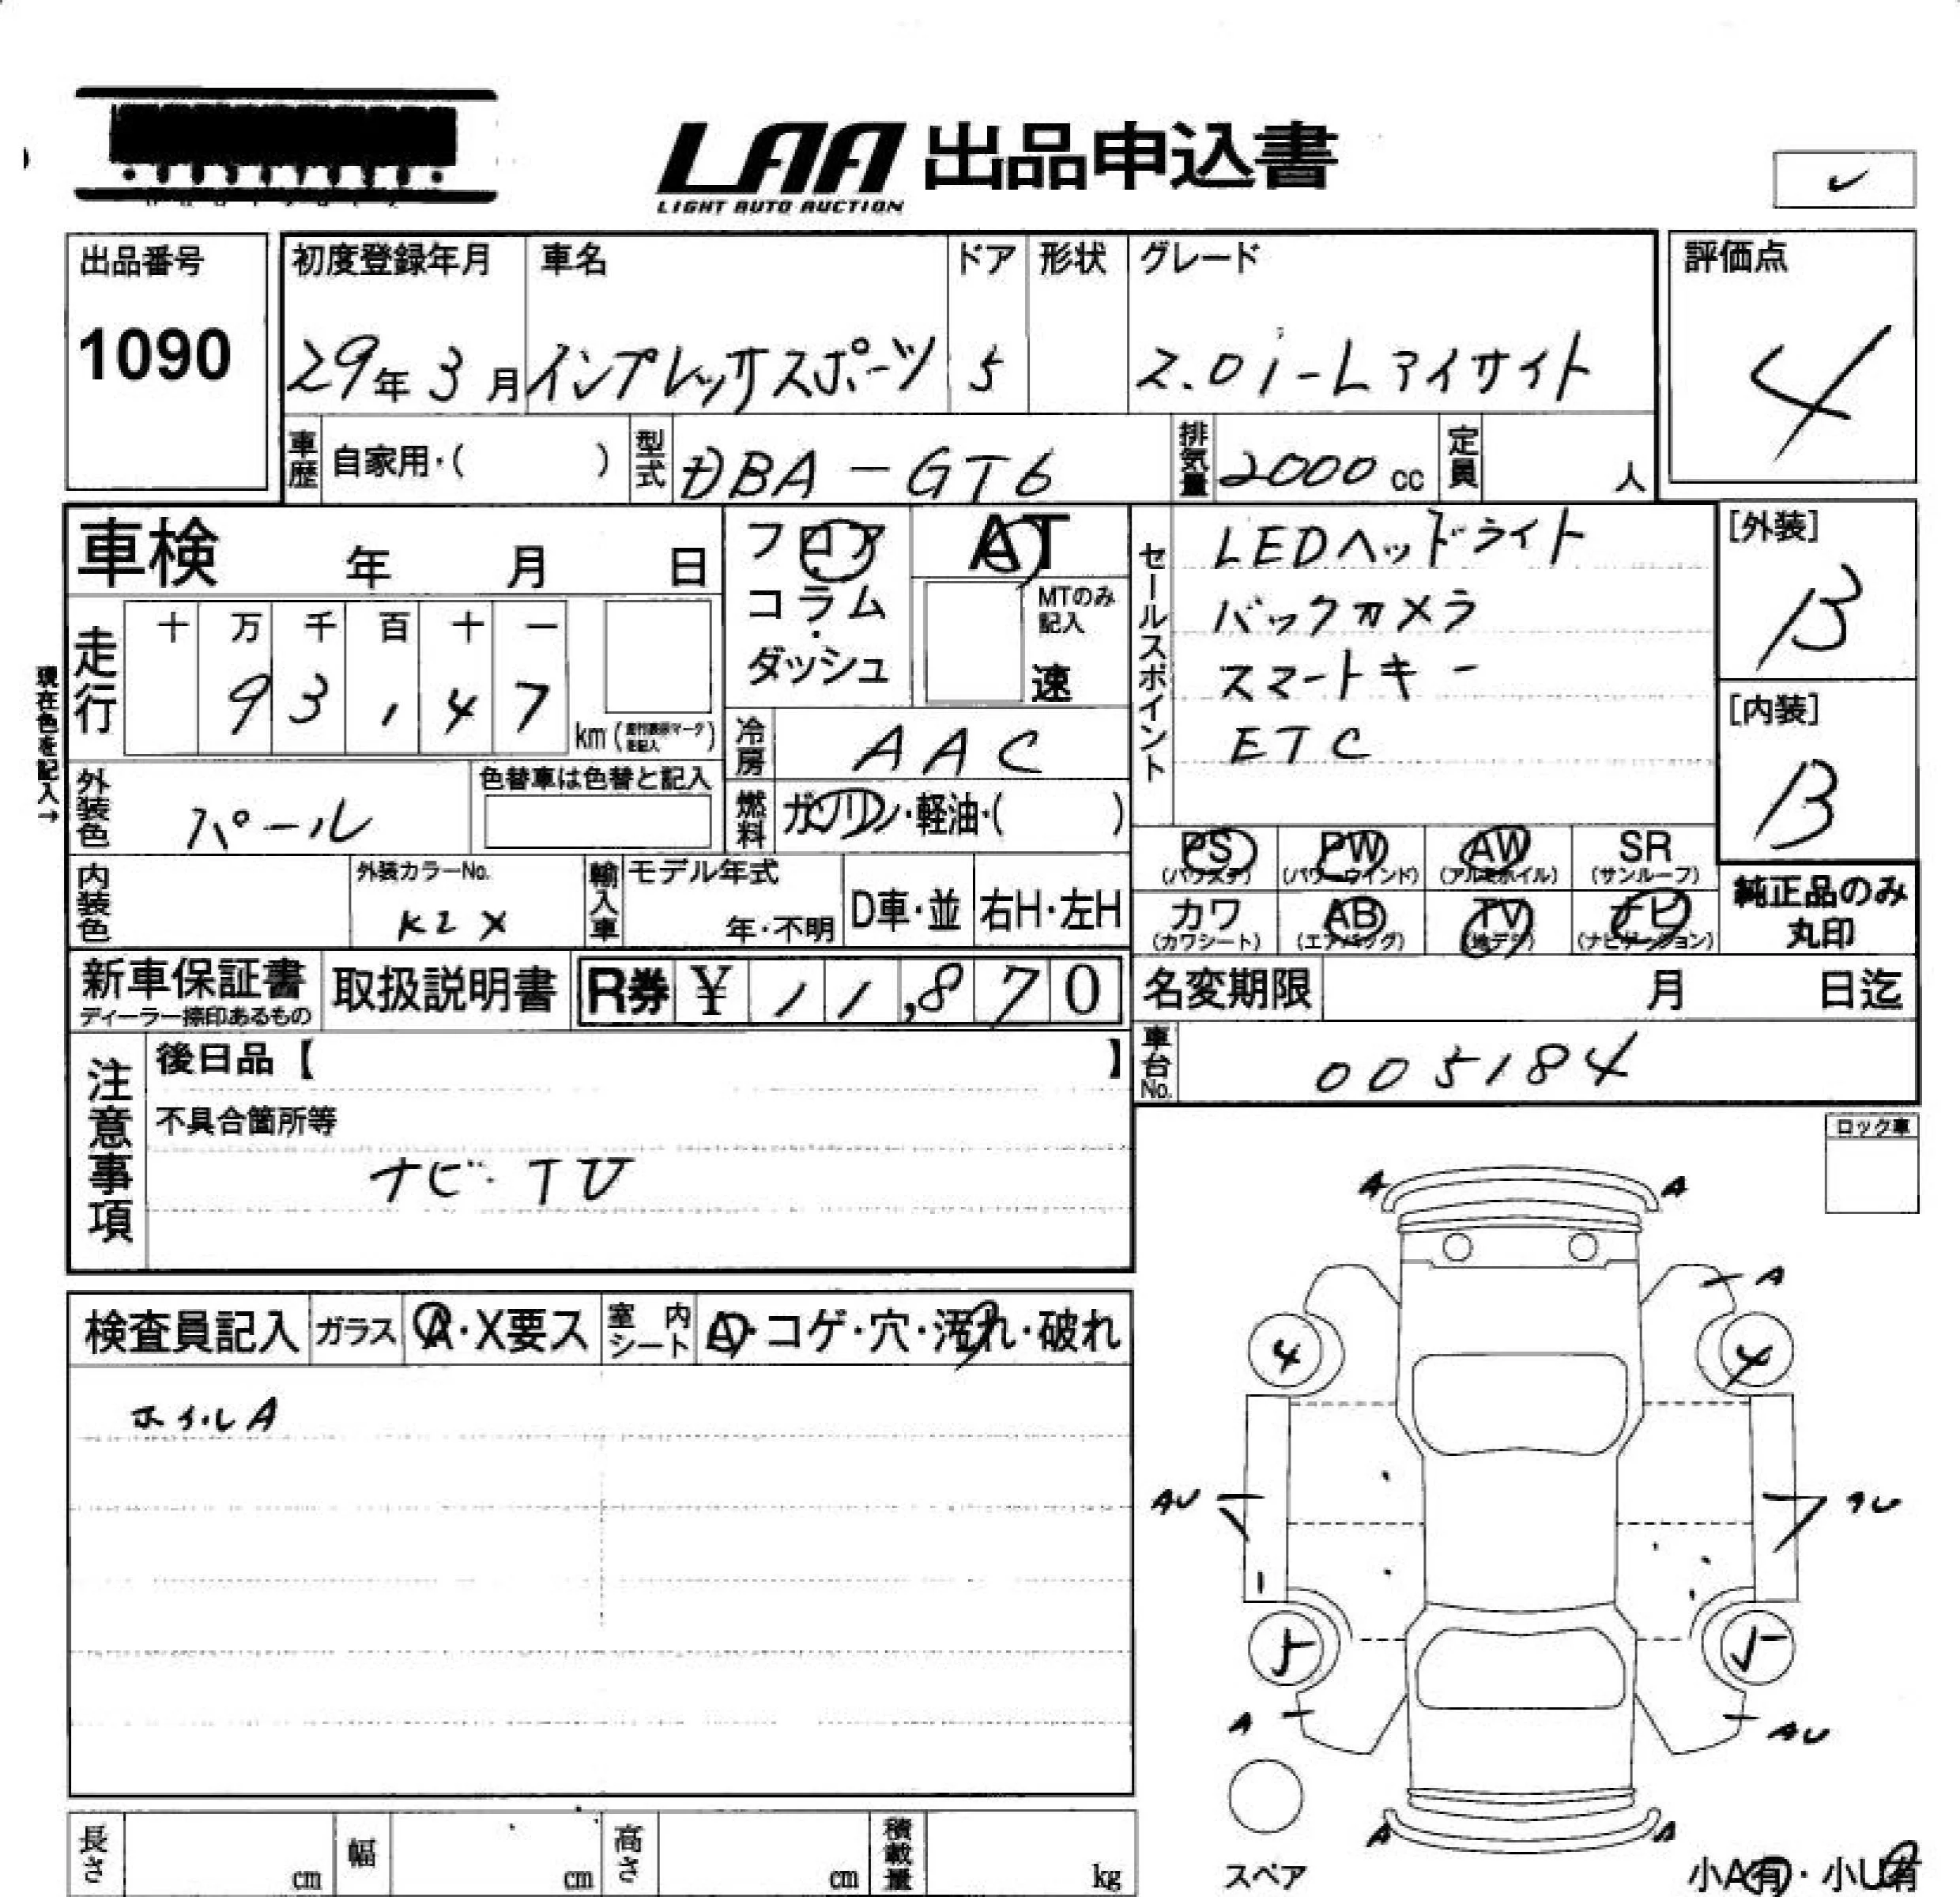 LAA 出品申込書
LIGHT AUTO AUCTION
出品番号
1090
初度登録年月 車名 ドア 形状 グレード
29年3月 インプレッサスポーツ 5 2.0i-Lアイサイト
評価点
4
車歴 自家用・( ) 型式 DBA-GT6 排気量 2000cc 定員 人
車検 年 月 日
フロア・コラム・ダッシュ
AT
MTのみ記入
速
走行 十 万 千 百 十 一
93,147 km
現在色を記入→
冷房 AAC
燃料 ガソリン・軽油・( )
外装色 パール
色替車は色替と記入
内装色
外装カラーNo.
K2X
輸入車 モデル年式
年・不明
D車・並 右H・左H
セールスポイント
LEDヘッドライト
バックカメラ
スマートキー
ETC
[外装]
B
[内装]
B
PS PW AW SR
(パワステ) (パワーウインド) (アルミホイル) (サンルーフ)
カワ AB TV ナビ
(カワシート) (エアバッグ) (地デジ) (ナビゲーション)
純正品のみ
丸印
新車保証書
ディーラー捺印あるもの
取扱説明書
R券 ¥ 11,870
名変期限 月 日迄
車台No. 005184
注意事項
後日品【 】
不具合箇所等
ナビ・TV
ロック車
検査員記入 ガラス A・X要ス 室内シート A・コゲ・穴・汚れ・破れ
ホイルA
A A
A
4 4
AU AU
5 5
A AU
A A
スペア
小A有・小U有
長さ cm 幅 cm 高さ cm 積載量 kg